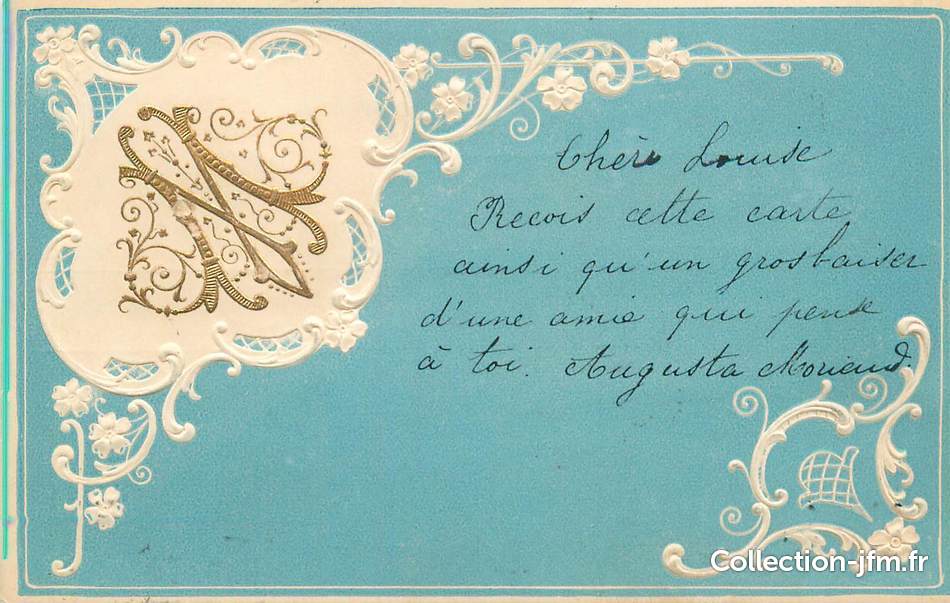 Chère Louise
Recois cette carte
ainsi qu'un gros baiser
d'une amie qui pense
à toi. Augusta Moriaud.
Collection-jfm.fr